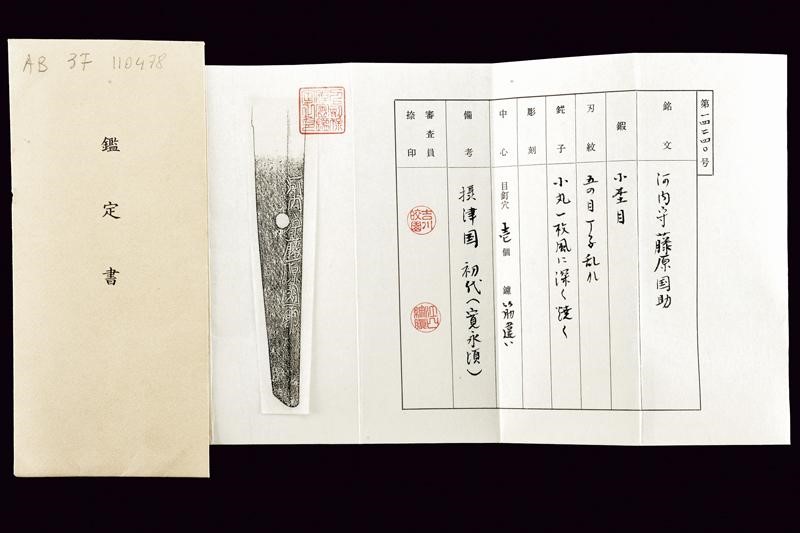 AB 3F 110478
鑑定書
第一四二四〇号
銘文 河内守藤原国助
鍛 小杢目
刃紋 五の目丁子乱れ
鋩子 小丸一枚風に深く焼く
彫刻
中心 目釘穴 壱個 鑢 筋違い
備考 摂津国 初代(寛永頃)
審査員捺印
河内守藤原国助